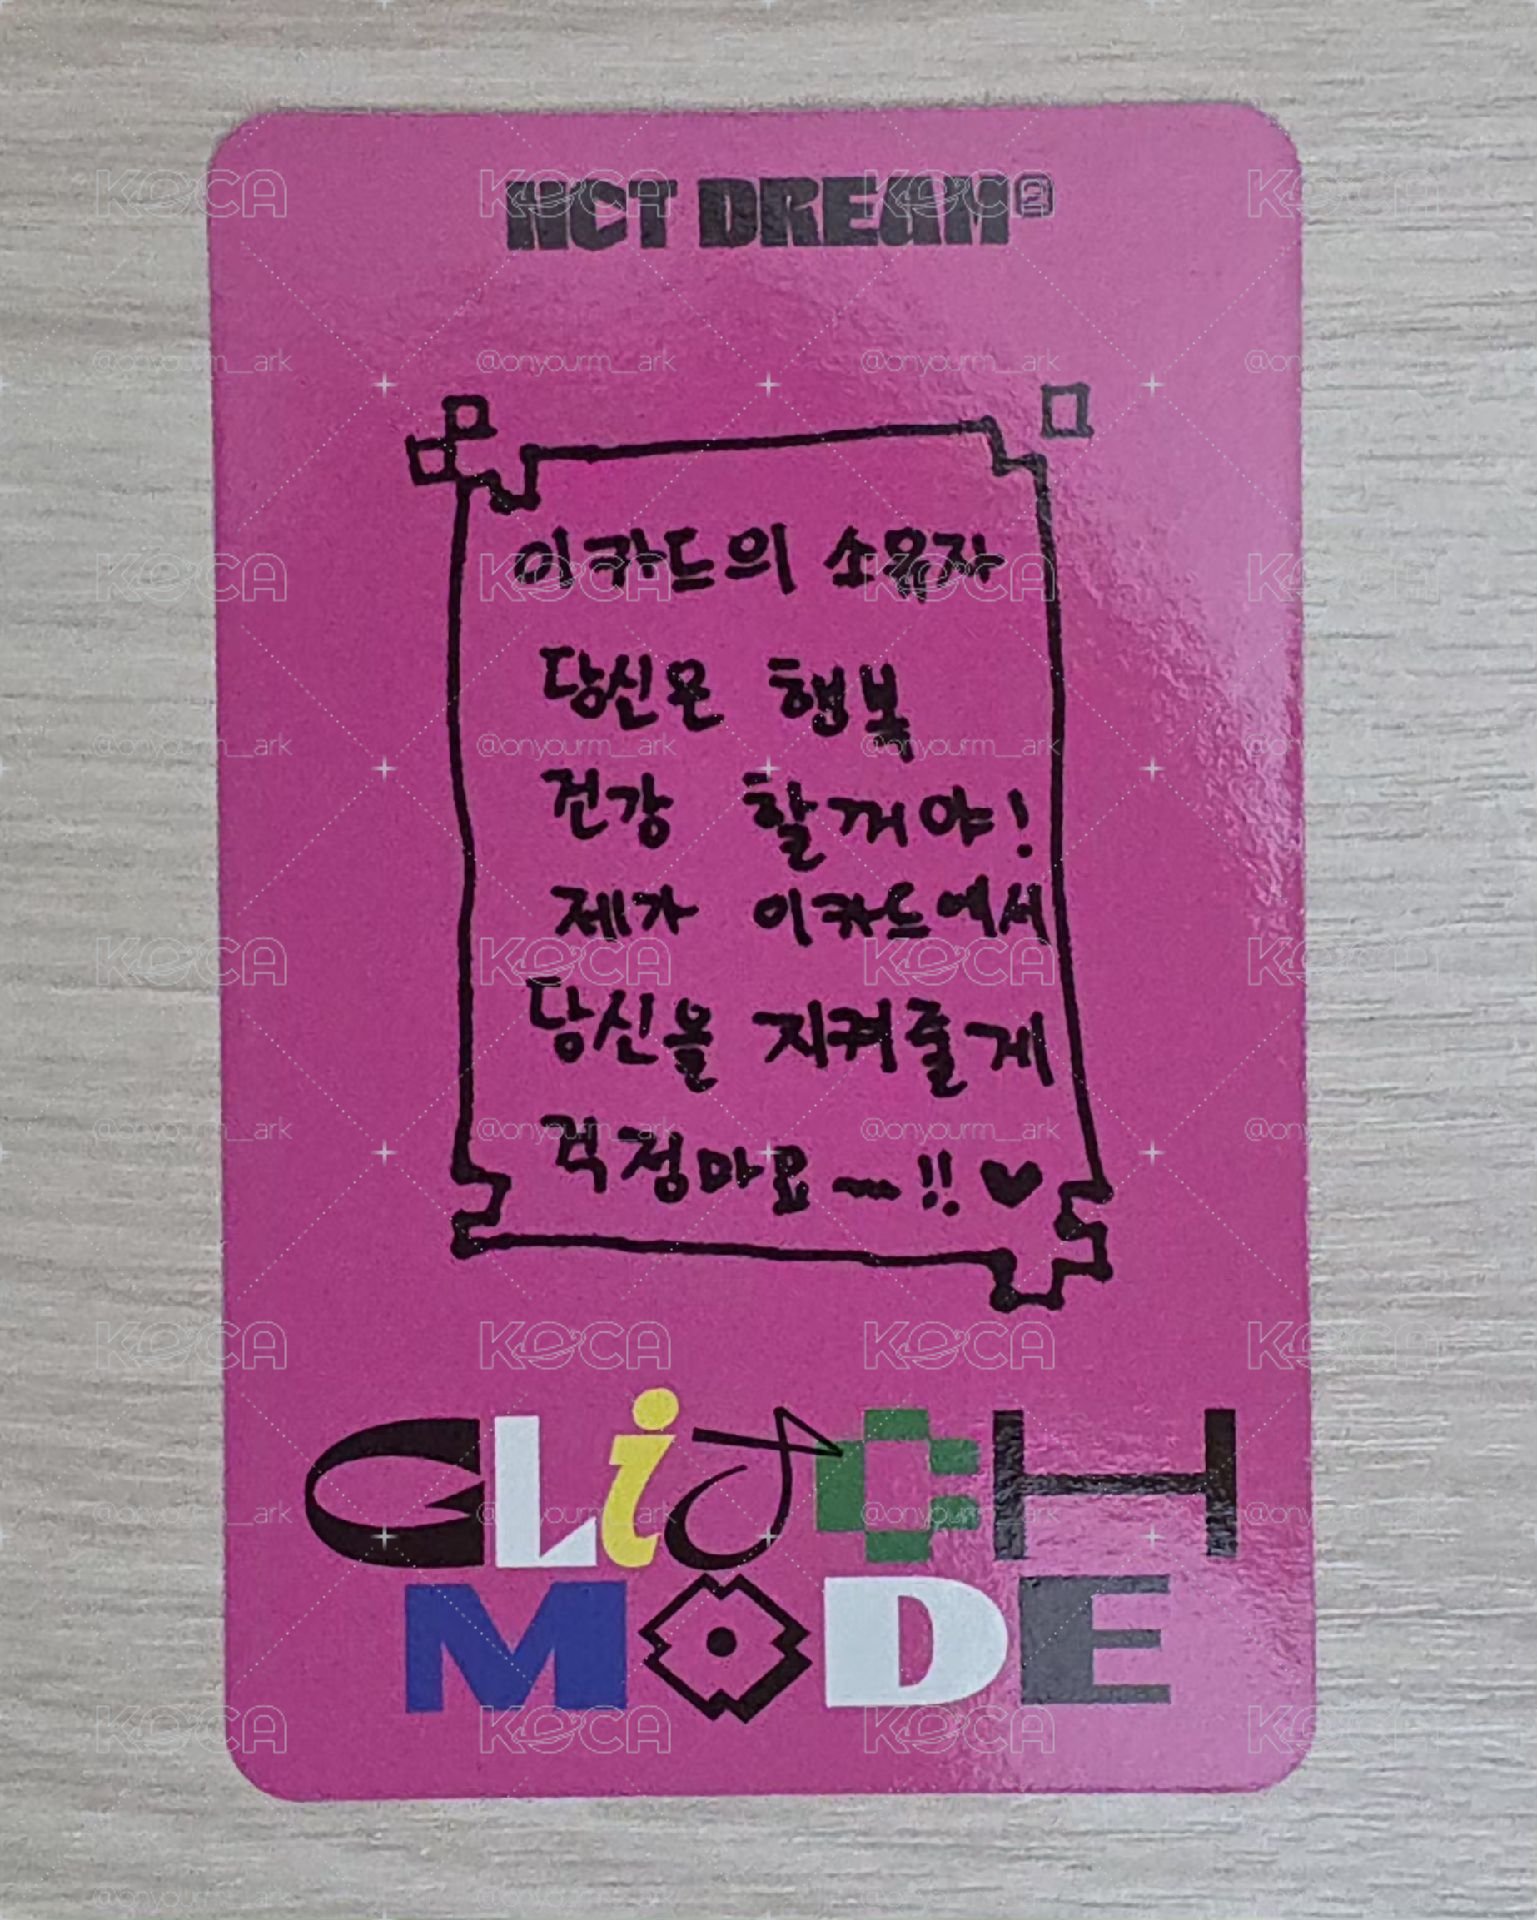 NCT DREAM
이카드의 소유자
당신은 행복
건강 할꺼야!
제가 이카드에서
당신을 지켜줄게
걱정마요~!! ♥
GLiTCH
MODE
KOCA
@onyourm__ark